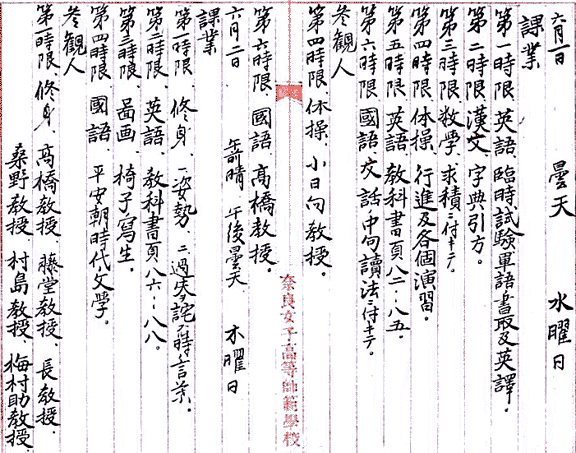 六月一日 曇天 水曜日
課業
第一時限、英語、臨時試驗單語書取及英譯。
第二時限、漢文、字典ノ引方。
第三時限、数学、求積ニ付キテ。
第四時限、体操、行進及各個演習。
第五時限、英語、教科書頁八二-八五。
第六時限、國語、文話、中句讀法ニ付キテ。
参観人
第四時限、体操、小日向教授。
奈良女子高等師範學校
第六時限、國語、高橋教授。
六月二日 午前晴 午後曇天 木曜日
課業
第一時限、修身、一姿勢、二過
第二時限、英語、教科書頁八六-八八。
第三時限、啚画、椅子寫生。
第四時限、國語、平安朝時代文学。
参観人
第一時限、修身、高橋教授、藤堂教授、長教授、
桑野教授、村島教授、梅村助教授、